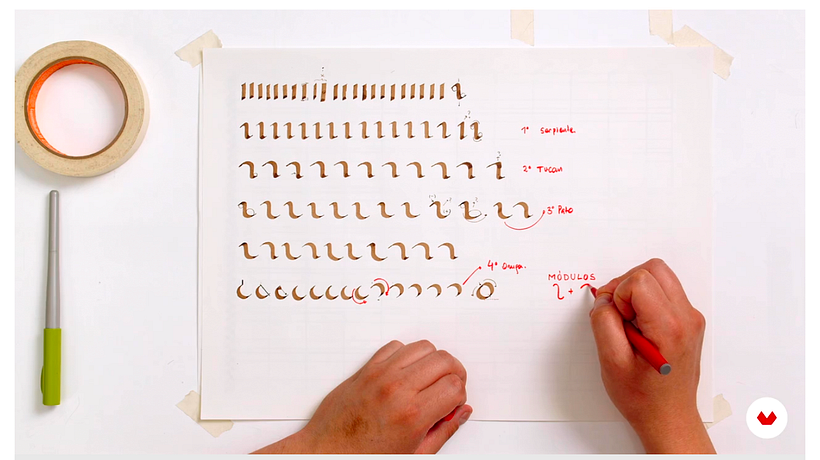 1º serpiente
2º Tucan
3º Pato
4º Oruga.
MÓDULOS